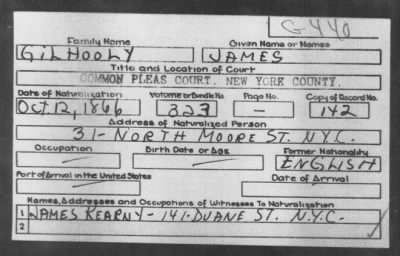 G-440
Family Name Given Name or Names
GILHOOLY JAMES
Title and Location of Court
COMMON PLEAS COURT, NEW YORK COUNTY.
Date of Naturalization Volume or Bundle No. Page No. Copy of Record No.
OCT. 12, 1866 323 - 142
Address of Naturalized Person
31-NORTH MOORE ST. N.Y.C.
Occupation Birth Date or Age Former Nationality
ENGLISH
Port of Arrival in the United States Date of Arrival
Names, Addresses and Occupations of Witnesses To Naturalization
1 JAMES KEARNY-141-DUANE ST. N.Y.C.
2